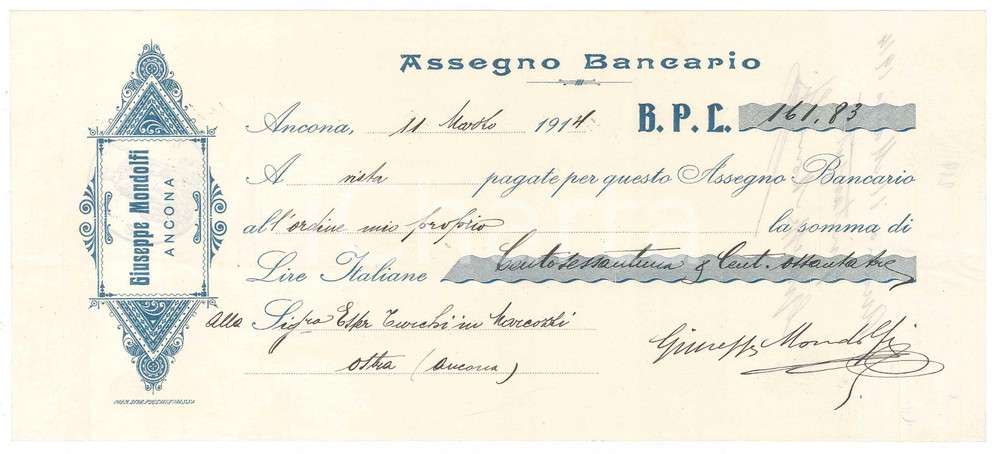 Assegno Bancario
Giuseppe Mondolfi
ANCONA
Ancona, 11 Marzo 1914 B. P. L. 161,83
A vista pagate per questo Assegno Bancario
all'ordine mio proprio la somma di
Lire Italiane Centosessantuna & Cent. ottantatre
alla Sigra Ester Turchi in Marcozzi
Ostra (Ancona)
Giuseppe Mondolfi